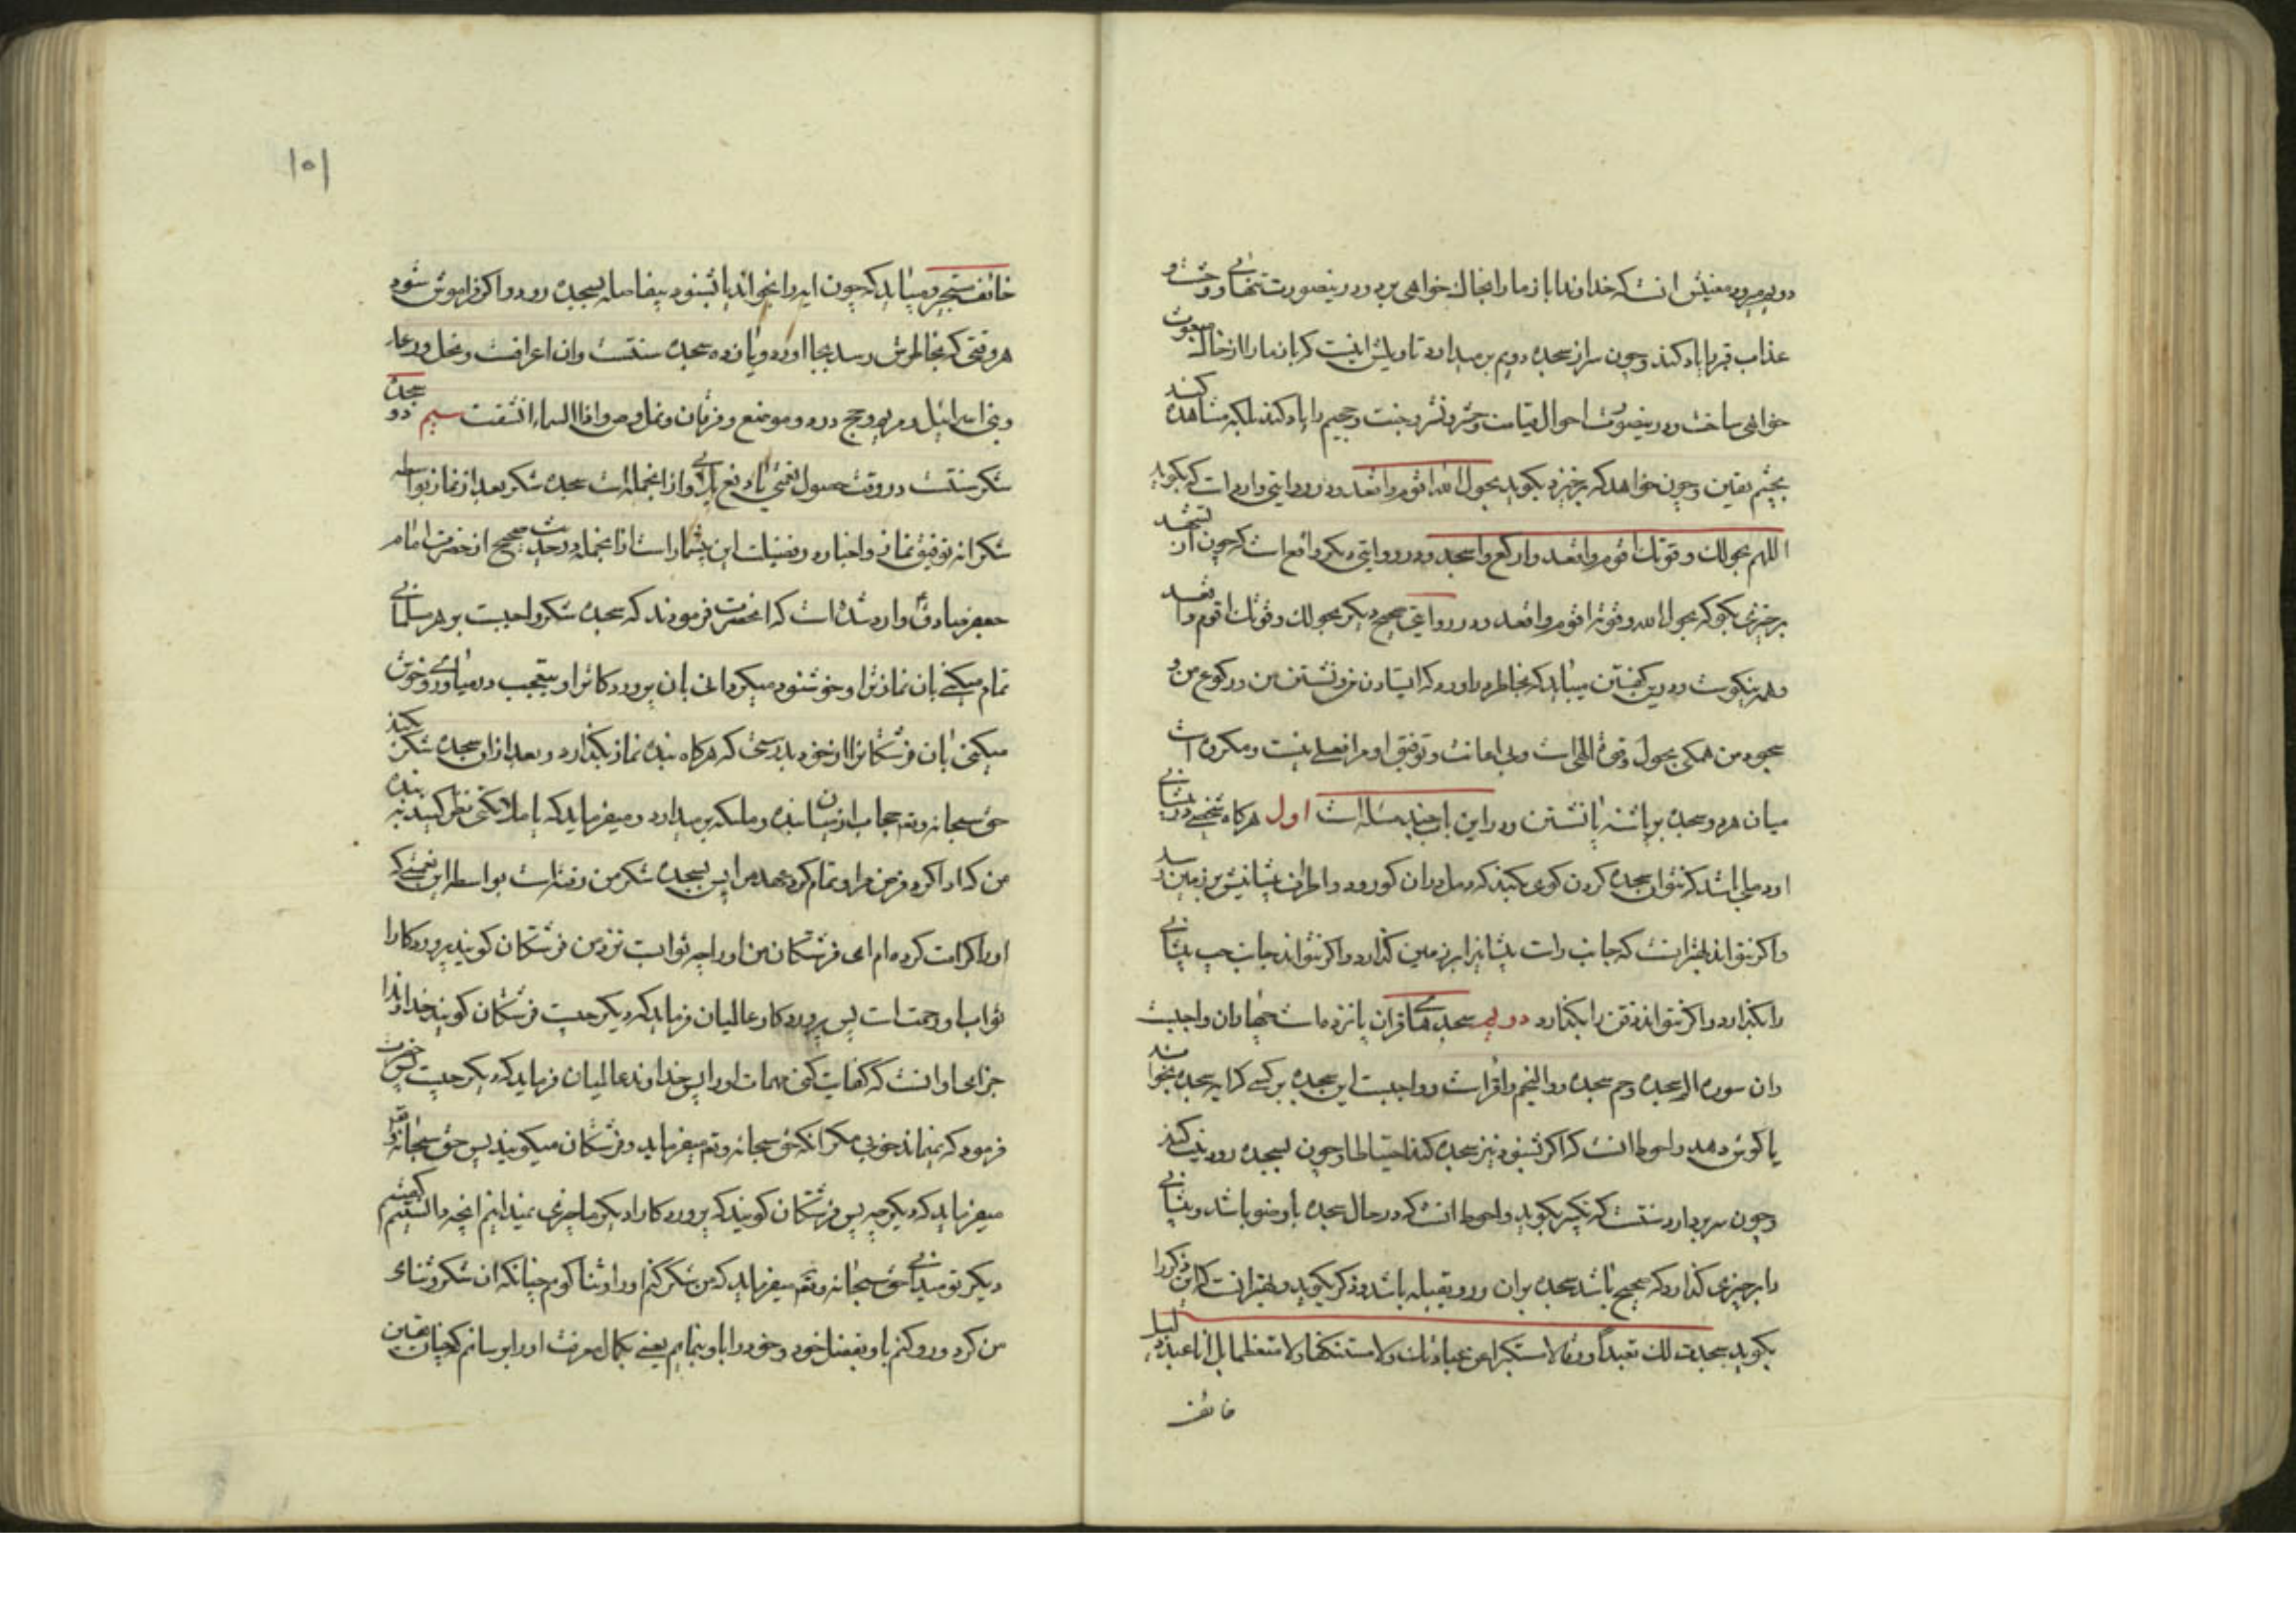 دویم میرود معنیش انست که خداوندا باز ما را بخاک خواهی برد و درینصورت تنهائی و وحشت و
عذاب قبر را یاد کند و چون سر از سجده دویم بر میدارد تاویلش اینست که باز ما را از خاک مبعوث
خواهی ساخت و درینصورت احوال قیامت و حشر و نشر و جنت و جحیم را یاد کند بلکه مشاهده کند
بچشم یقین و چون خواهد که برخیزد بگوید بحول الله اقوم واقعد و در روایتی وارد است که بگوید
اللهم بحولك وقوتك اقوم واقعد واركع واسجد و در روایتی دیگر واقع است که چون از تشهد
برخیزی بگو که بحول الله وقوته اقوم واقعد و در روایتی صحیح دیگر بحولك وقوتك اقوم واقعد
و همه نیکوست و درین گفتن میباید که بخاطر در آورد که ایستادن من و نشستن من و رکوع من و
سجود من همگی بحول و قوة الهی است و بی اعانت و توفیق او مرا فعلی نیست و مکروه است
میان هر دو سجده بر پاشنه پا نشستن و در این باب چند مسئله است اول هرگاه شخصی در پیشانی
او دملی باشد که نتوان سجده کردن کوی بکند که دمل در ان کو رود و اطراف پیشانیش بر زمین رسد
و اگر نتواند بهتر انست که جانب راست پیشانیرا بر زمین گذارد و اگر نتواند جانب چپ پیشانی
را بگذارد و اگر نتواند ذقن را بگذارد دویم سجدهای قران پانزده است چهار ان واجبست
و ان سوره الم سجده و حم سجده و والنجم و اقراست و واجبست این سجده بر کسی که ایه سجده بخواند
یا گوش دهد و احوط انست که اگر بشنود نیز سجده کند احتیاطا و چون بسجده رود نیت کند
و چون سر بردارد سنتست که تکبیر بگوید و احوط انست که در حال سجده با وضو باشد و پیشانی
را بر چیزی گذارد که صحیح باشد سجده بران و رو بقبله باشد و ذکر بگوید و بهتر انست که این ذکر را
بگوید سجدت لك تعبدا ورقا لا مستكبرا عن عبادتك ولا مستنكفا ولا متعظما بل انا عبد ذليل
خائف
۱۵۱
خائف مستجیر و میباید که چون ایه را بخواند یا بشنود بیفاصله بسجده رود و اگر فراموش شود
هر وقتی که بخاطرش رسد بجا اورد و یازده سجده سنتست و ان اعرافست و نحل و رعد
و بنی اسرائیل و مریم و حج در دو موضع و فرقان و نمل و ص و اذا السماء انشقت سیم سجده
شکر سنتست در وقت حصول نعمتی یا دفع بلائی و از انجمله است سجده شکر بعد از نماز بواسطه
شکرانه توفیق نماز و اخبار در فضیلت این بیشمار است از انجمله در حدیث صحیح از حضرت امام
جعفر صادق ع وارد شده است که انحضرت فرمودند که سجده شکر واجبست بر هر مسلمانی
تمام میکنی بان نماز ترا و خوشنود میگردانی بان پروردگار ترا و بتعجب درمیاوری و خوش
میکنی بان فرشتگانرا از خود بدرستی که هرگاه بنده نماز بگذارد و بعد از ان سجده شکر کند
حق سبحانه وتع حجاب از میان بنده و ملئکه بر میدارد و میفرماید که یا ملائکتی نظر کنید به بنده
من که ادا کرد فرض مرا و تمام کرد عهد مرا پس سجده شکر من رفته است بواسطه این نعمتی که
او را کرامت کرده ام ای فرشتگان من او را چه ثوابست نزد من فرشتگان گویند پروردگارا
ثواب او رحمتست پس پروردگار عالمیان فرماید که دیگر چیست فرشتگان گویند خداوندا
جزای او انست که کفایت کنی مهمات او را پس خداوند عالمیان فرماید که دیگر چیست پس حضرت
فرمود که نمیماند خوبی مگر انکه حق سبحانه وتع میفرماید و فرشتگان میگویند پس حق سبحانه وتع
میفرماید که دیگر چه پس فرشتگان گویند که پروردگارا دیگر ما چیزی نمیدانیم انچه دانستیم گفتیم
دیگر تو میدانی حق سبحانه وتع میفرماید که من شکر کنم او را و ثنا گویم چنانکه ان شکر و ثنای
من کرد و رو کنم باو بفضل خود و خود را باو بنمایم یعنی بکمال معرفت او را برسانم که چنان یقین